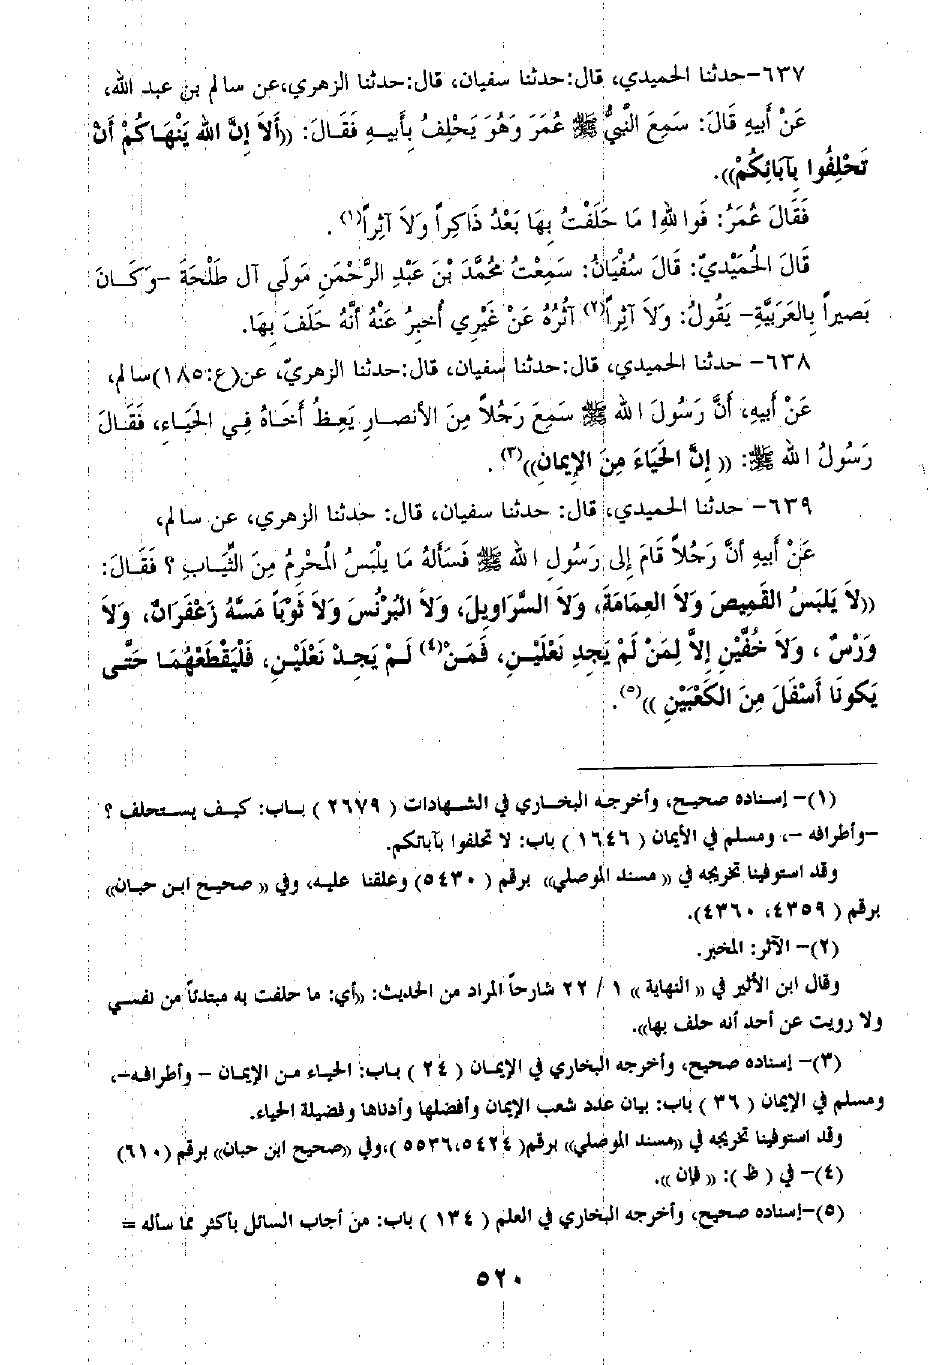 ٦٣٧- حدثنا الحميدي، قال: حدثنا سفيان، قال: حدثنا الزهري، عن سالم بن عبد الله،
عَنْ أَبِيهِ قَالَ: سَمِعَ النَّبِيُّ ﷺ عُمَرَ وَهُوَ يَحْلِفُ بِأَبِيهِ فَقَالَ: ((أَلاَ إِنَّ الله يَنْهَاكُمْ أَنْ
تَحْلِفُوا بِآبَائِكُمْ)).
فَقَالَ عُمَرُ: فَوَاللهِ! مَا حَلَفْتُ بِهَا بَعْدُ ذَاكِراً وَلاَ آثِراً(١) .
قَالَ الحُمَيْدِيّ: قَالَ سُفْيَانُ: سَمِعْتُ مُحَمَّدَ بْنَ عَبْدِ الرَّحْمَنِ مَوْلَى آلِ طَلْحَةَ -وَكَانَ
بَصيراً بِالعَرَبيَّةِ- يَقُولُ: وَلاَ آثِراً(٢) آثُرُهُ عَنْ غَيْرِي أُخبِرُ عَنْهُ أَنَّهُ حَلَفَ بِهَا.
٦٣٨- حدثنا الحميدي، قال: حدثنا سفيان، قال: حدثنا الزهريّ، عن(ع:١٨٥)سالم،
عَنْ أَبيهِ، أَنَّ رَسُولَ الله ﷺ سَمِعَ رَجُلاً مِنَ الأنصارِ يَعِظُ أَخَاهُ فِي الحَيَاءِ، فَقَالَ
رَسُولُ الله ﷺ: (( إِنَّ الحَيَاءَ مِنَ الإِيمَانِ))(٣) .
٦٣٩- حدثنا الحميدي، قال: حدثنا سفيان، قال: حدثنا الزهري، عن سالم،
عَنْ أَبيهِ أَنَّ رَجُلاً قَامَ إِلى رَسُولِ الله ﷺ فَسَأَلَهُ مَا يلْبَسُ المُحْرِمُ مِنَ الثِّيَابِ ؟ فَقَالَ:
((لاَ يَلبَسُ القَمِيصَ وَلاَ العِمَامَةَ، وَلاَ السَّرَاوِيلَ، وَلاَ البُرْنُسَ وَلاَ ثَوْباً مَسَّهُ زَعْفَرَانٌ، وَلاَ
وَرْسٌ ، وَلاَ خُفَّيْنِ إِلاَّ لِمَنْ لَمْ يَجِدِ نَعْلَيْنِ، فَمَنْ(٤) لَمْ يَجِدْ نَعْلَيْنِ، فَلْيَقْطَعْهُمَا حَتَّى
يَكونَا أَسْفَلَ مِنَ الكَعْبَيْنِ ))(٥).
(١)- إسناده صحيح، وأخرجه البخاري في الشهادات ( ٢٦٧٩ ) باب: كيف يستحلف ؟
-وأطرافه -، ومسلم في الأيمان ( ١٦٤٦ ) باب: لا تحلفوا بآبائكم.
وقد استوفينا تخريجه في (( مسند الموصلي)) برقم ( ٥٤٣٠) وعلقنا عليه، وفي (( صحيح ابن حبان))
برقم ( ٤٣٥٩، ٤٣٦٠).
(٢)- الآثر: المخبر.
وقال ابن الأثير في (( النهاية )) ١ / ٢٢ شارحاً المراد من الحديث: ((أي: ما حلفت به مبتدئاً من نفسي
ولا رويت عن أحد أنه حلف بها)).
(٣)- إسناده صحيح، وأخرجه البخاري في الإيمان ( ٢٤ ) باب: الحياء من الإيمان - وأطرافه-،
ومسلم في الإيمان ( ٣٦ ) باب: بيان عدد شعب الإيمان وأفضلها وأدناها وفضيلة الحياء.
وقد استوفينا تخريجه في ((مسند الموصلي)) برقم( ٥٤٢٤،٥٥٣٦ )،وفي ((صحيح ابن حبان)) برقم (٦١٠)
(٤)- في ( ظ ): (( فإن )).
(٥)-إسناده صحيح، وأخرجه البخاري في العلم ( ١٣٤ ) باب: من أجاب السائل بأكثر مما سأله =
٥٢٠